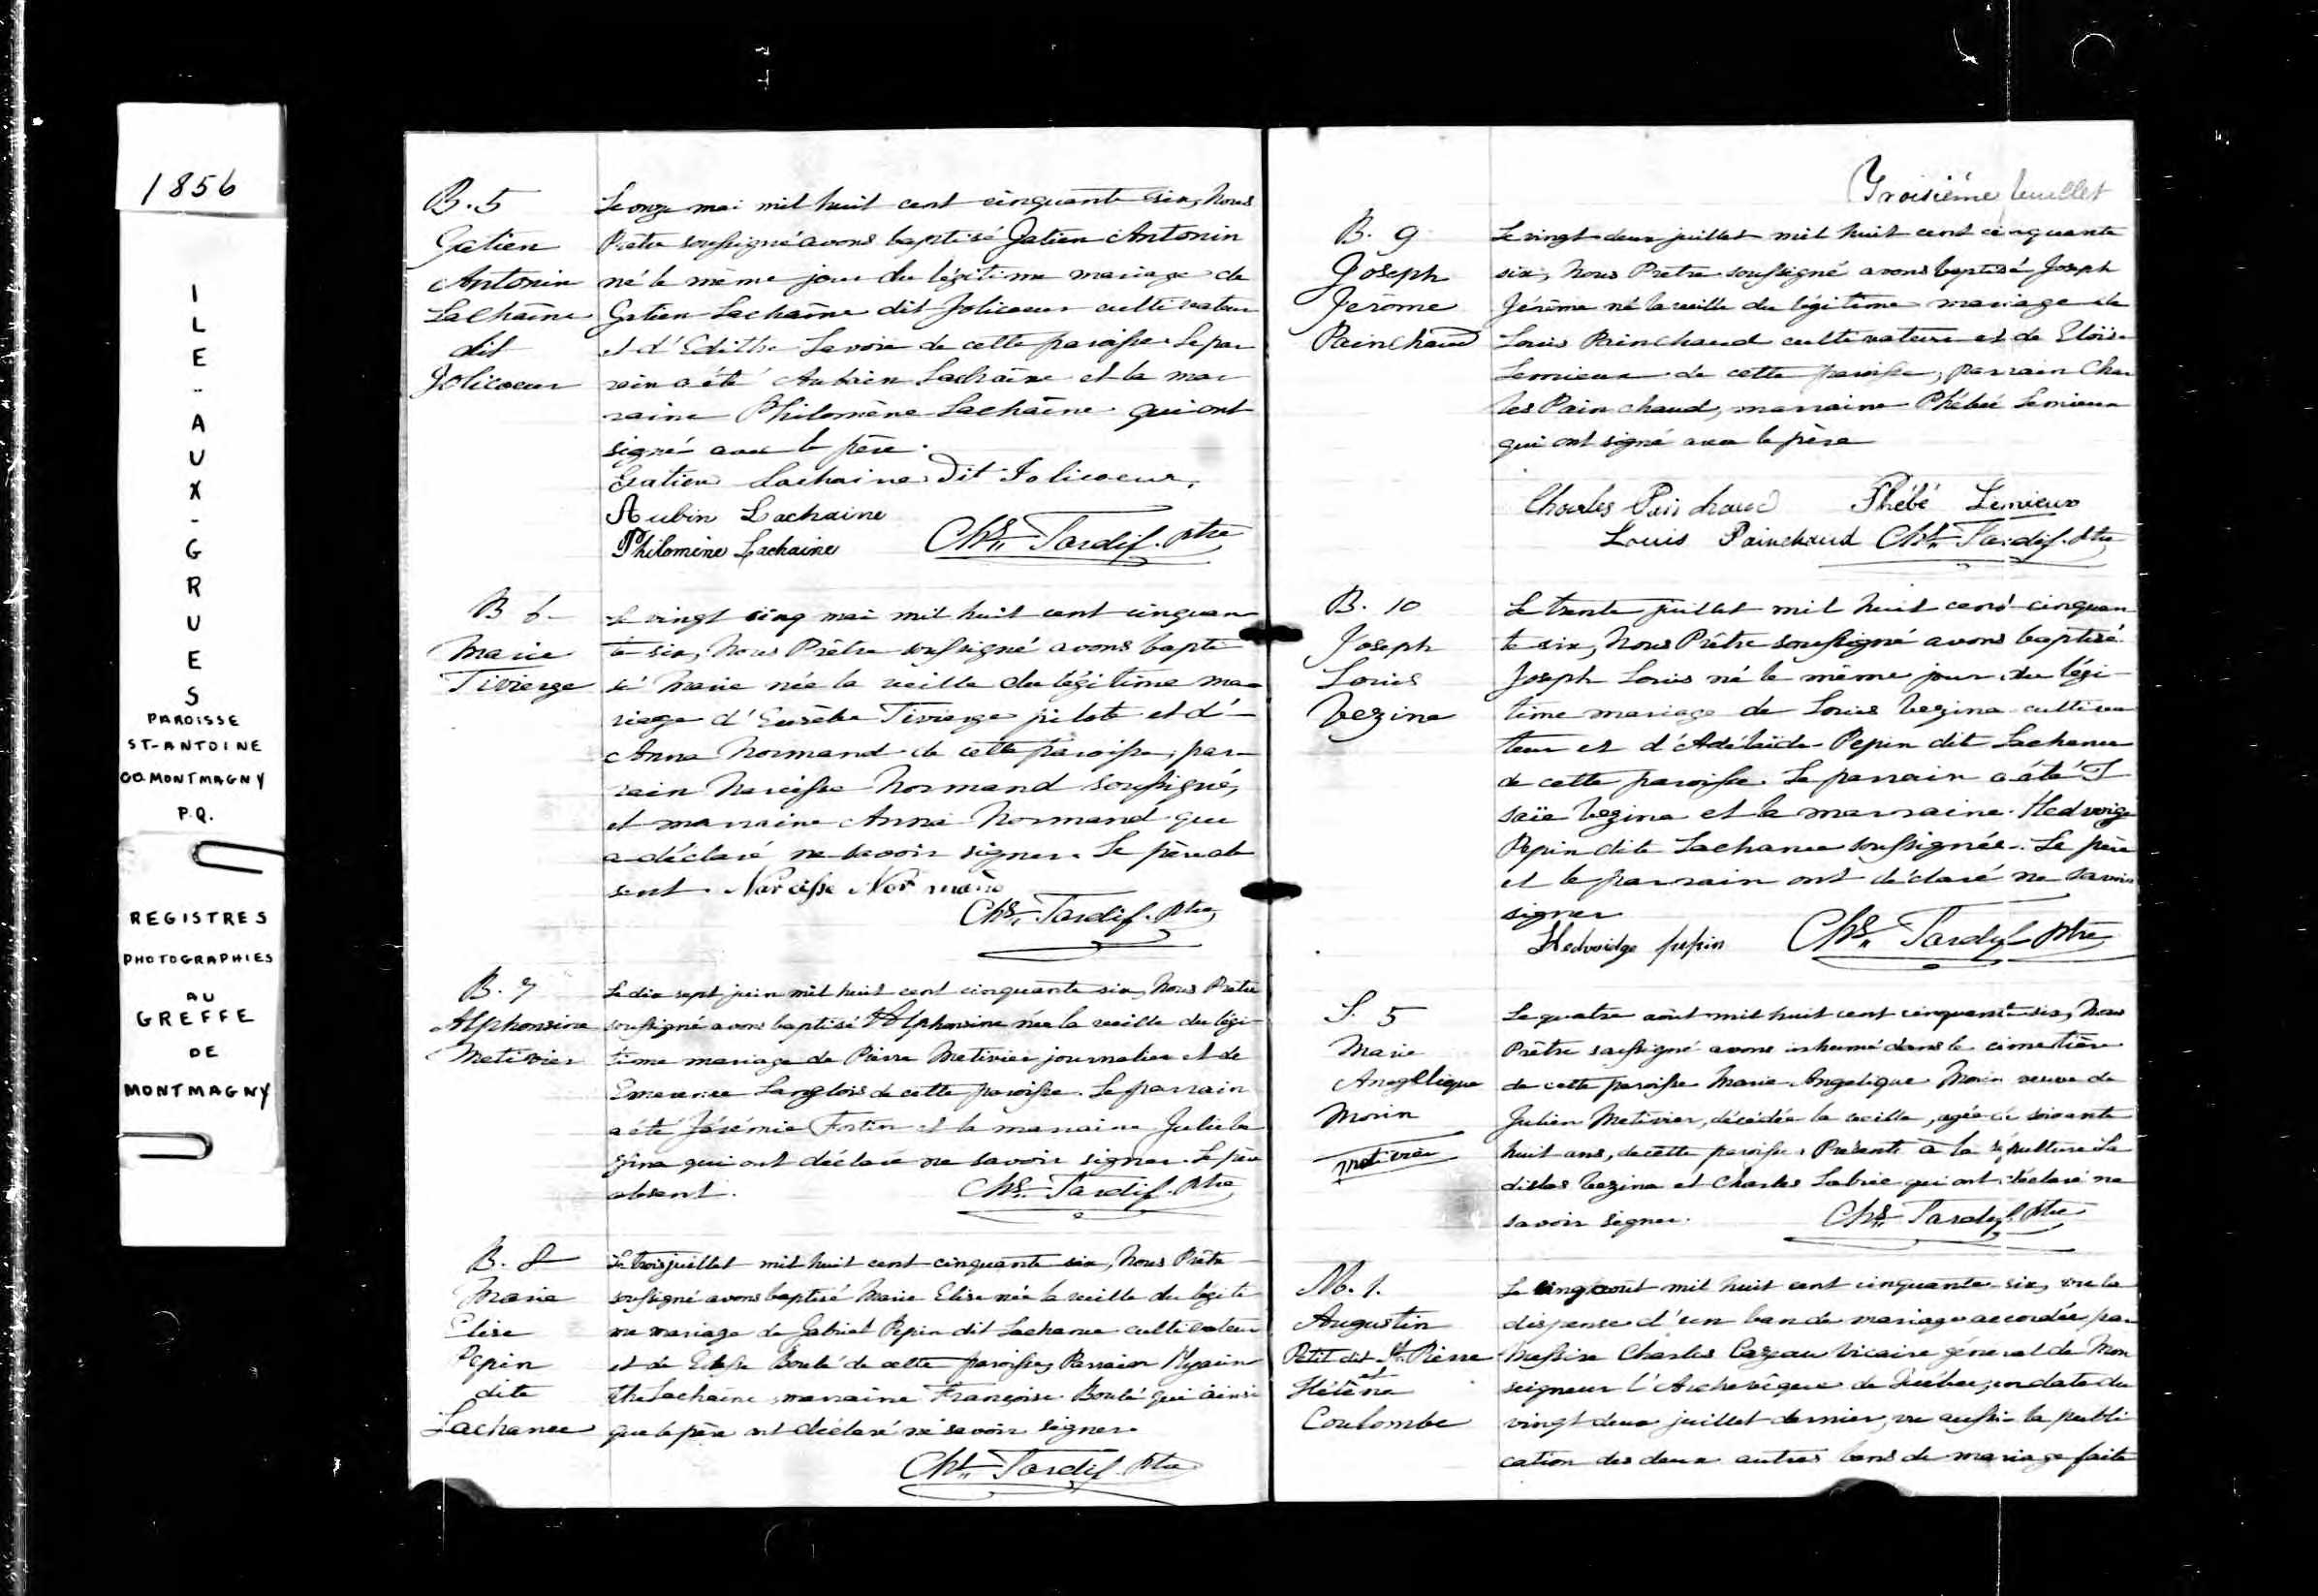 1856
ILE-AUX-GRUES
PAROISSE
ST-ANTOINE
CO. MONTMAGNY
P.Q.
REGISTRES
PHOTOGRAPHIES
AU
GREFFE
DE
MONTMAGNY
B. 5
Gatien
Antonin
Lachaîne
dit
Jolicoeur
Le onze mai mil huit cent cinquante six, Nous
Prêtre soussigné avons baptisé Gatien Antonin
né le même jour du légitime mariage de
Gatien Lachaîne dit Jolicoeur cultivateur
et d'Edithe Lavoie de cette paroisse. Le par
rain a été Aubin Lachaîne et la mar
raine Philomène Lachaîne qui ont
signé avec le père.
Gatien Lachaine Dit Jolicoeur,
Aubin Lachaine
Philomène Lachaine Chs. Tardif. Ptre
B 6-
Marie
Tivierge
Le vingt cinq mai mil huit cent cinquan
te six, Nous Prêtre soussigné avons bapti
sé Marie née la veille du légitime ma-
riage d'Eusèbe Tivierge pilote et d'-
Anna Normand de cette paroisse; par-
rain Narcisse Normand soussigné,
et marraine Anna Normand qui
a déclaré ne savoir signer. Le père ab
sent. Narcisse Normand
Chs. Tardif. Ptre
B. 7
Alphonsine
Metivier
Le dix sept juin mil huit cent cinquante six, Nous Prêtre
soussigné avons baptisé Alphonsine née la veille du légi-
time mariage de Pierre Metivier journalier et de
Emerence Langlois de cette paroisse. Le parrain
a été Jérémie Fortin et la marraine Julie Ve
zina qui ont déclaré ne savoir signer. Le père
absent. Chs. Tardif. Ptre
B. 8
Marie
Elise
Pepin
dite
Lachance
Le trois juillet mil huit cent cinquante six, Nous Prêtre
soussigné avons baptisé Marie Elise née la veille du légiti
me mariage de Gabriel Pepin dit Lachance cultivateur
et de Boulé de cette paroisse, Parrain Hyacin
the Lachaîne, marraine Françoise Boulé qui ainsi
que le père ont déclaré ne savoir signer.
Chs. Tardif. Ptre
Troisième feuillet
B. 9
Joseph
Jérôme
Painchaud
Le vingt deux juillet mil huit cent cinquante
six, Nous Prêtre soussigné avons baptisé Joseph
Jérôme né la veille du légitime mariage de
Louis Painchaud cultivateur et de Eloïse
Lemieux de cette paroisse, parrain Char
les Painchaud, marraine Phébée Lemieux
qui ont signé avec le père
Charles Painchaud Phébé Lemieux
Louis Painchaud Chs. Tardif. Ptre
B. 10
Joseph
Louis
Vezina
Le trente juillet mil huit cent cinquan
te six, Nous Prêtre soussigné avons baptisé
Joseph Louis né le même jour du légi-
time mariage de Louis Vezina cultiva
teur et d'Adélaïde Pepin dit Lachance
de cette paroisse. Le parrain a été I
saïe Vezina et la marraine Hedwige
Pepin dite Lachance soussignée. Le père
et le parrain ont déclaré ne savoir
signer
Hedwidge pepin Chs. Tardif Ptre
S. 5
Marie
Angélique
Morin
Metivier
Le quatre août mil huit cent cinquante six, Nous
Prêtre soussigné avons inhumé dans le cimetière
de cette paroisse Marie Angelique Morin veuve de
Julien Metivier, décédée la veille, agée de soixante
huit ans, de cette paroisse. Présents à la sépulture La
dislas Vezina et Charles Labrie qui ont déclaré ne
savoir signer. Chs. Tardif. Ptre
M. 1.
Augustin
Petit dit St. Pierre
et
Hélène
Coulombe
Le cinq août mil huit cent cinquante six, vu la
dispense d'un ban de mariage accordée par
Messire Charles Cazeau Vicaire général de Mon
seigneur l'Archevêque de Québec, en date du
vingt deux juillet dernier, vu aussi la publi
cation des deux autres bans de mariage faite